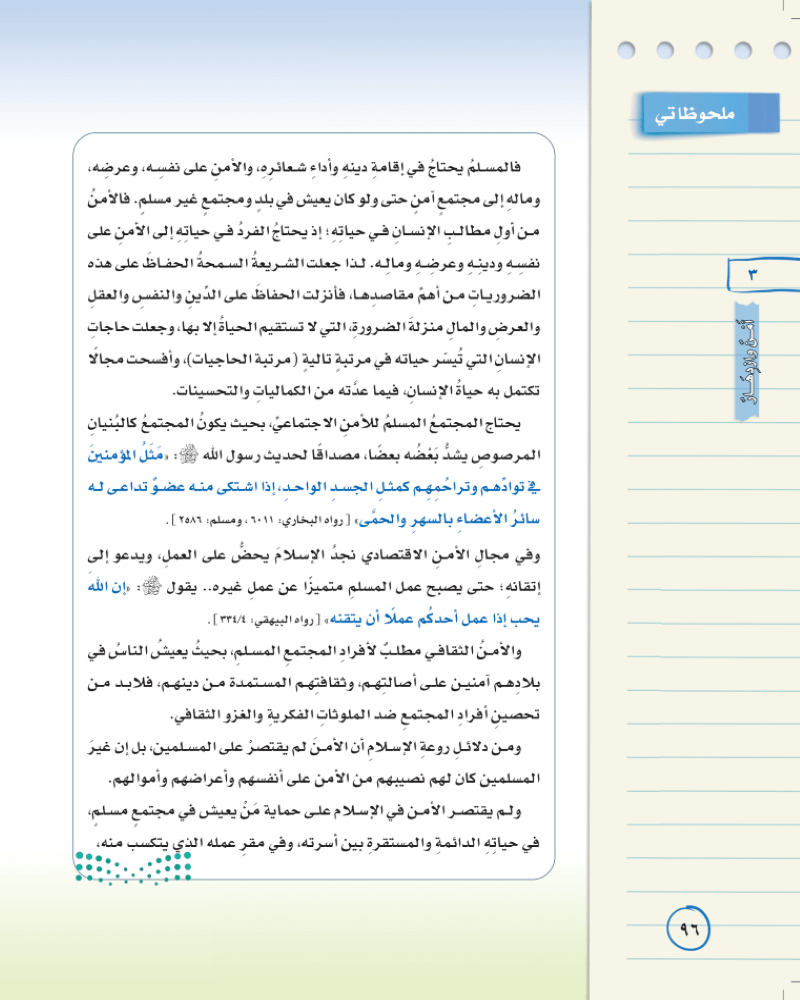 ملحوظاتي
٣
أَمْنٌ وازدِهَارٌ
فالمسلمُ يحتاجُ في إقامةِ دينهِ وأداءِ شعائرِهِ، والأمنِ على نفسِه، وعرضِه،
ومالهِ إلى مجتمعٍ آمنٍ حتى ولو كان يعيش في بلدٍ ومجتمعٍ غير مسلمٍ. فالأمنُ
من أولِ مطالبِ الإنسانِ في حياتِهِ؛ إذ يحتاجُ الفردُ في حياتِهِ إلى الأمنِ على
نفسِهِ ودينِهِ وعرضِهِ ومالِه. لذا جعلت الشريعةُ السمحةُ الحفاظَ على هذه
الضرورياتِ من أهمِّ مقاصدِها، فأنزلت الحفاظَ على الدِّينِ والنفسِ والعقلِ
والعرضِ والمالِ منزلةَ الضرورةِ، التي لا تستقيم الحياةُ إلا بها، وجعلت حاجاتِ
الإنسانِ التي تُيسّر حياته في مرتبةٍ تاليةٍ (مرتبة الحاجيات)، وأفسحت مجالًا
تكتمل به حياةُ الإنسانِ، فيما عدَّته من الكمالياتِ والتحسينات.
يحتاج المجتمعُ المسلمُ للأمنِ الاجتماعيِّ، بحيث يكونُ المجتمعُ كالبُنيانِ
المرصوصِ يشدُّ بَعْضُه بعضًا، مصداقًا لحديث رسول الله ﷺ: «مَثَلُ المؤمنينَ
في توادِّهم وتراحُمِهِم كمثلِ الجسدِ الواحدِ، إذا اشتكى منه عضوٌ تداعى له
سائرُ الأعضاءِ بالسهرِ والحمَّى» [رواه البخاري: ٦٠١١، ومسلم: ٢٥٨٦].
وفي مجالِ الأمنِ الاقتصادي نجدُ الإسلامَ يحضُّ على العملِ، ويدعو إلى
إتقانهِ؛ حتى يصبح عمل المسلمِ متميزًا عن عملِ غيره.. يقول ﷺ: «إن اللهَ
يحب إذا عمل أحدكُم عملًا أن يتقنه» [رواه البيهقي: ٣٣٤/٤].
والأمنُ الثقافي مطلبٌ لأفرادِ المجتمعِ المسلمِ، بحيثُ يعيشُ الناسُ في
بلادِهم آمنين على أصالتِهم، وثقافتِهم المستمدة من دينهم، فلابد من
تحصينِ أفرادِ المجتمعِ ضد الملوثاتِ الفكريةِ والغزو الثقافي.
ومن دلائلِ روعةِ الإسلامِ أن الأمنَ لم يقتصرْ على المسلمين، بل إن غيرَ
المسلمين كان لهم نصيبهم من الأمن على أنفسهم وأعراضهم وأموالهم.
ولم يقتصر الأمن في الإسلام على حماية مَنْ يعيش في مجتمعٍ مسلمٍ،
في حياتِهِ الدائمةِ والمستقرةِ بين أسرته، وفي مقرِ عمله الذي يتكسب منه،
٩٦